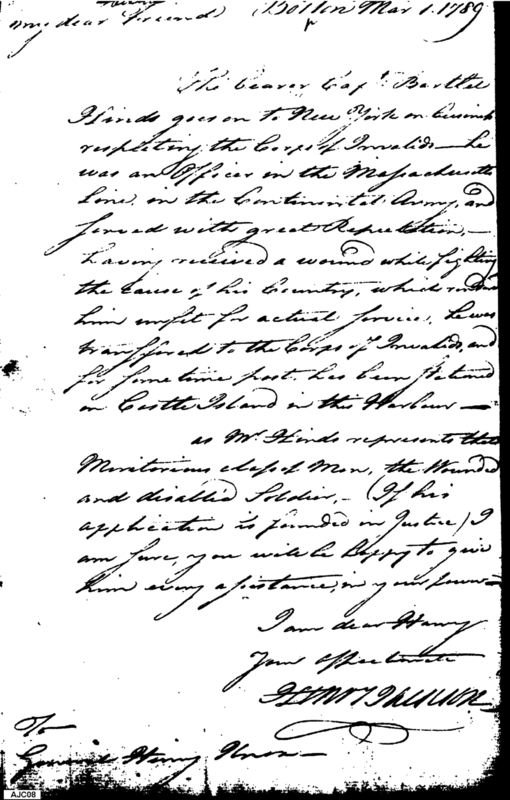 Boston Mar 1. 1789
my dear Friend
The bearer Capt. Bartlet
Hinds goes on to New York on business
respecting the Corps of Invalids — he
was an Officer in the Massachusetts
Line, in the Continental Army, and
served with great Reputation, —
having received a wound while fighting
the cause of his Country, which renders
him unfit for actual service, he was
transferred to the Corps of Invalids, and
for some time past, has been stationed
on Castle Island in this Harbour —
as Mr. Hinds represents that
Meritorious class of Men, the Wounded
and disabled Soldier, — (If his
application is founded in Justice) I
am sure, you will be happy to give
him every assistance, in your power —
I am dear Harry
Your affectionate
Henry Jackson
To
General Henry Knox —
AJC08